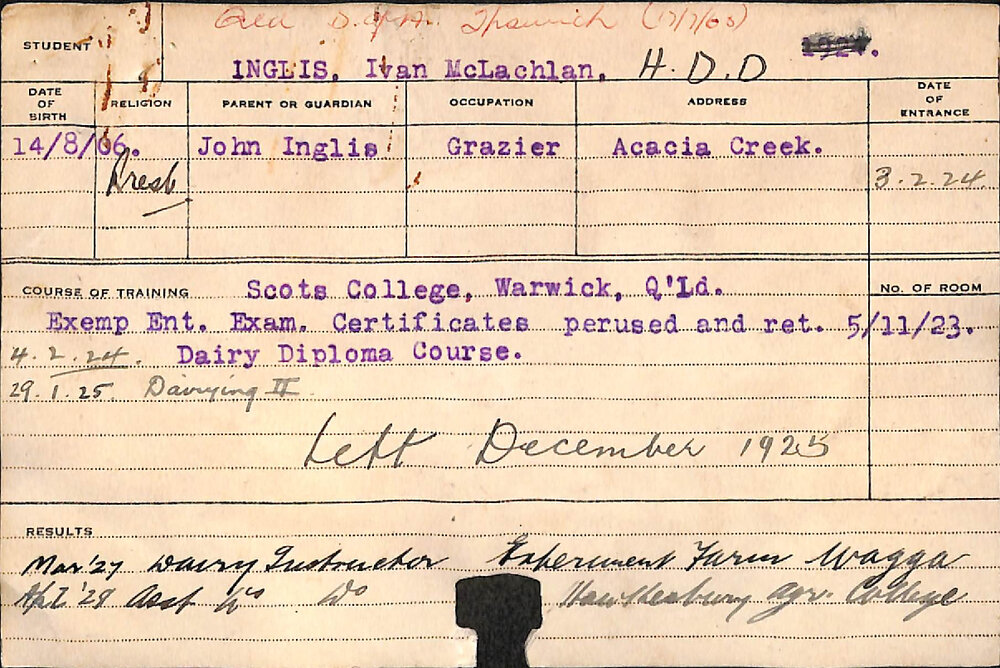 Qld D.of A. Ipswich (17/7/63)
STUDENT
INGLIS, Ivan McLachlan, H.D.D 1924.
DATE OF BIRTH RELIGION PARENT OR GUARDIAN OCCUPATION ADDRESS DATE OF ENTRANCE
14/8/06. John Inglis Grazier Acacia Creek.
Presb 3.2.24.
COURSE OF TRAINING Scots College, Warwick, Q'Ld. No. OF ROOM
Exemp Ent. Exam. Certificates perused and ret. 5/11/23.
4.2.24. Dairy Diploma Course.
29.1.25. Dairying II
Left December 1925
RESULTS
Mar '27 Dairy Instructor Experiment Farm Wagga
Apl '28 Asst Do Do Hawkesbury Agr. College